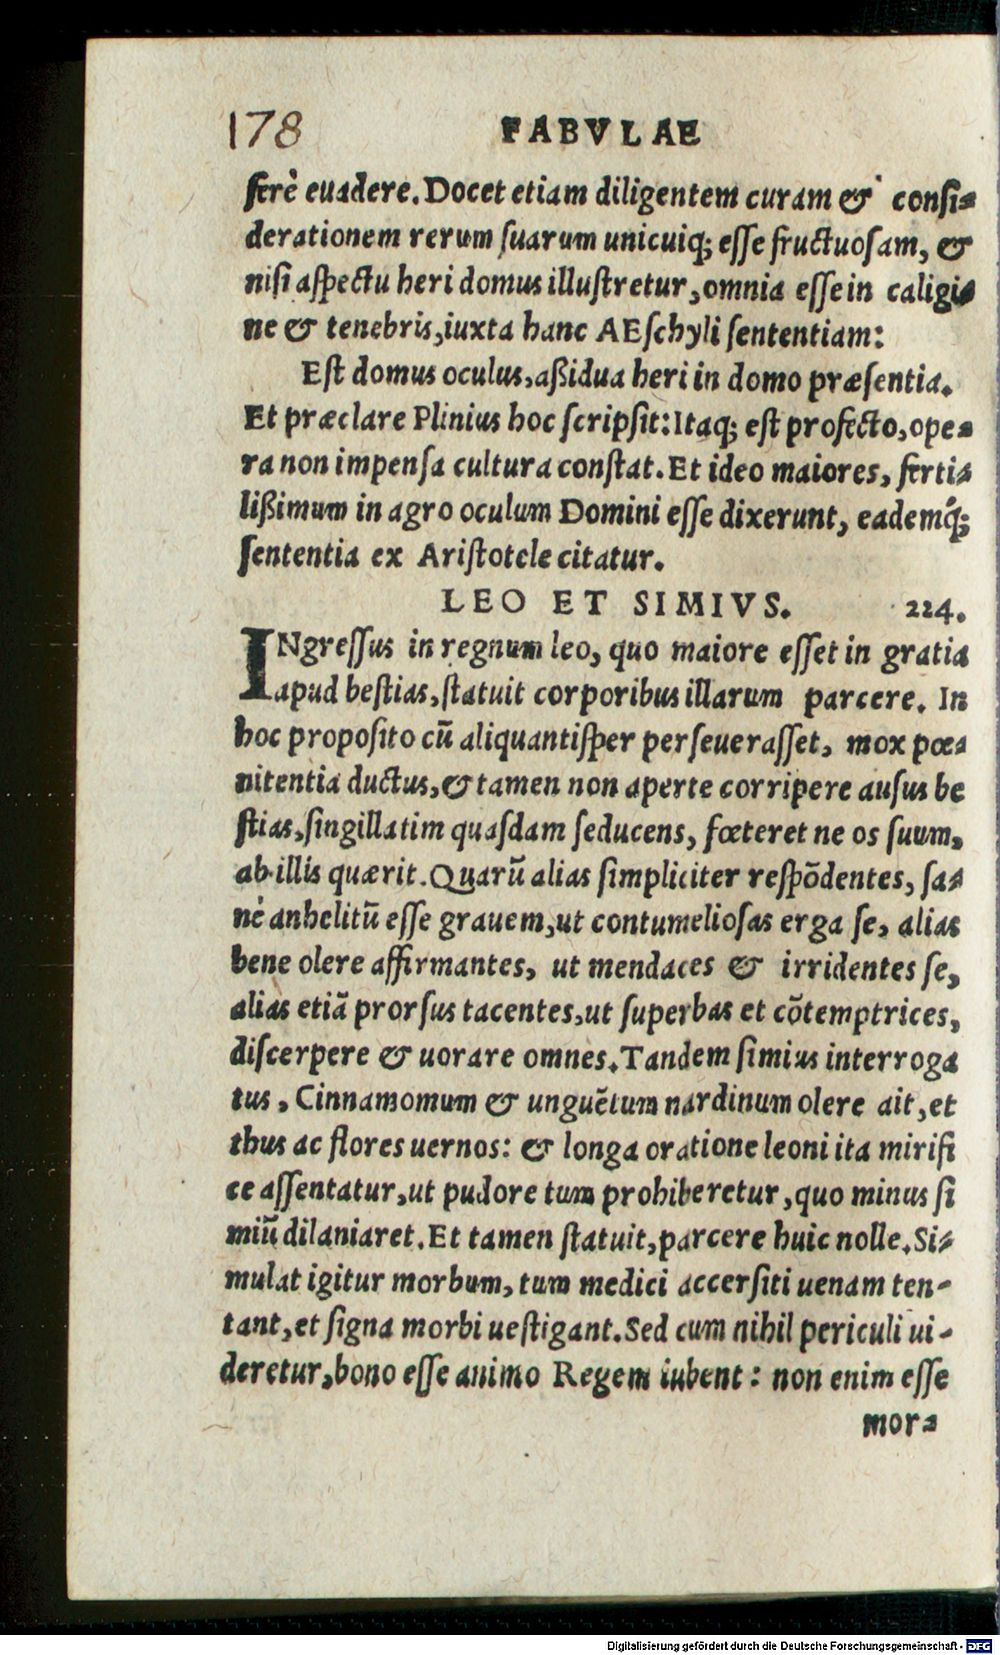 178 FABVLAE
ferè euadere. Docet etiam diligentem curam & consi-
derationem rerum suarum unicuiq; esse fructuosam, &
nisi aspectu heri domus illustretur, omnia esse in caligi-
ne & tenebris, iuxta hanc AEschyli sententiam:
Est domus oculus, aßidua heri in domo præsentia.
Et præclare Plinius hoc scripsit: Itaq; est profecto, ope-
ra non impensa cultura constat. Et ideo maiores, ferti-
lißimum in agro oculum Domini esse dixerunt, eademq́;
sententia ex Aristotele citatur.
LEO ET SIMIVS. 224.
INgressus in regnum leo, quo maiore esset in gratia
apud bestias, statuit corporibus illarum parcere. In
hoc proposito cũ aliquantisper perseuerasset, mox pœ-
nitentia ductus, & tamen non aperte corripere ausus be
stias, singillatim quasdam seducens, fœteret ne os suum,
ab illis quærit. Quarũ alias simpliciter respõdentes, sa-
nè anhelitũ esse grauem, ut contumeliosas erga se, alias
bene olere affirmantes, ut mendaces & irridentes se,
alias etiã prorsus tacentes, ut superbas et cõtemptrices,
discerpere & uorare omnes. Tandem simius interroga
tus, Cinnamomum & unguẽtum nardinum olere ait, et
thus ac flores uernos: & longa oratione leoni ita mirifi
ce assentatur, ut pudore tum prohiberetur, quo minus si
miũ dilaniaret. Et tamen statuit, parcere huic nolle. Si-
mulat igitur morbum, tum medici accersiti uenam ten-
tant, et signa morbi uestigant. Sed cum nihil periculi ui-
deretur, bono esse animo Regem iubent: non enim esse
mor-
Digitalisierung gefördert durch die Deutsche Forschungsgemeinschaft - DFG